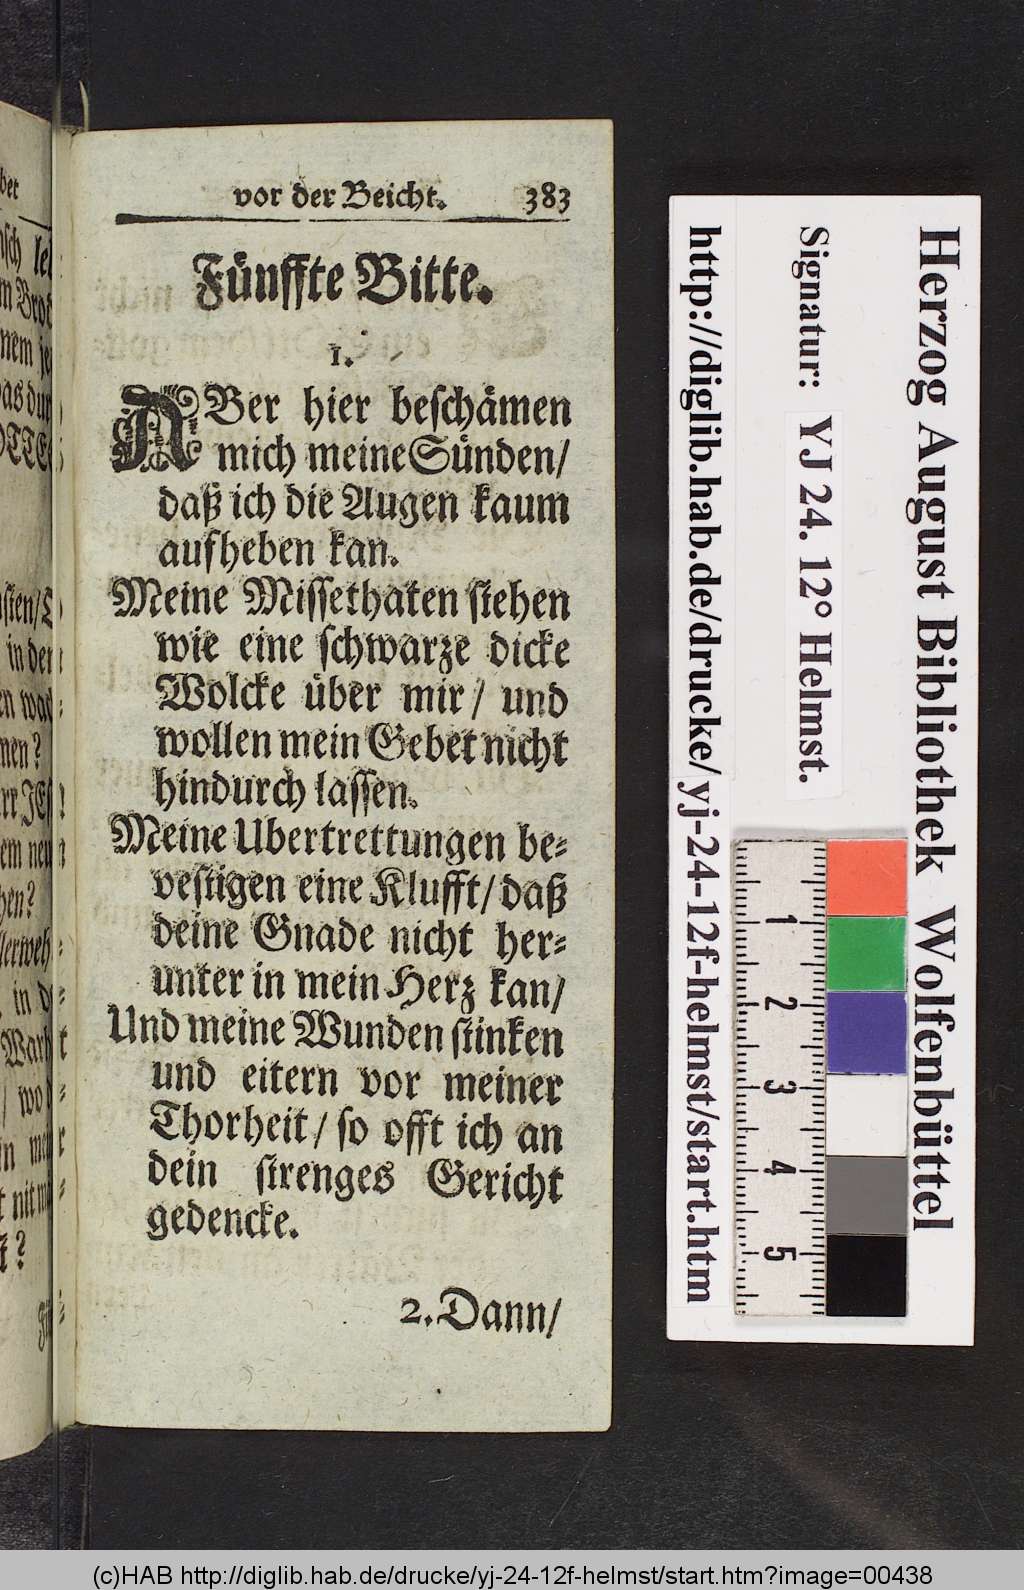 vor der Beicht. 383
Fünffte Bitte.
1.
ABer hier beschämen
mich meine Sünden/
daß ich die Augen kaum
aufheben kan.
Meine Missethaten stehen
wie eine schwarze dicke
Wolcke über mir/ und
wollen mein Gebet nicht
hindurch lassen.
Meine Ubertrettungen be-
vestigen eine Klufft/ daß
deine Gnade nicht her-
unter in mein Herz kan/
Und meine Wunden stinken
und eitern vor meiner
Thorheit/ so offt ich an
dein strenges Gericht
gedencke.
2. Dann/
Herzog August Bibliothek Wolfenbüttel
Signatur: YJ 24. 12° Helmst.
http://diglib.hab.de/drucke/yj-24-12f-helmst/start.htm
1
2
3
4
5
(c)HAB http://diglib.hab.de/drucke/yj-24-12f-helmst/start.htm?image=00438